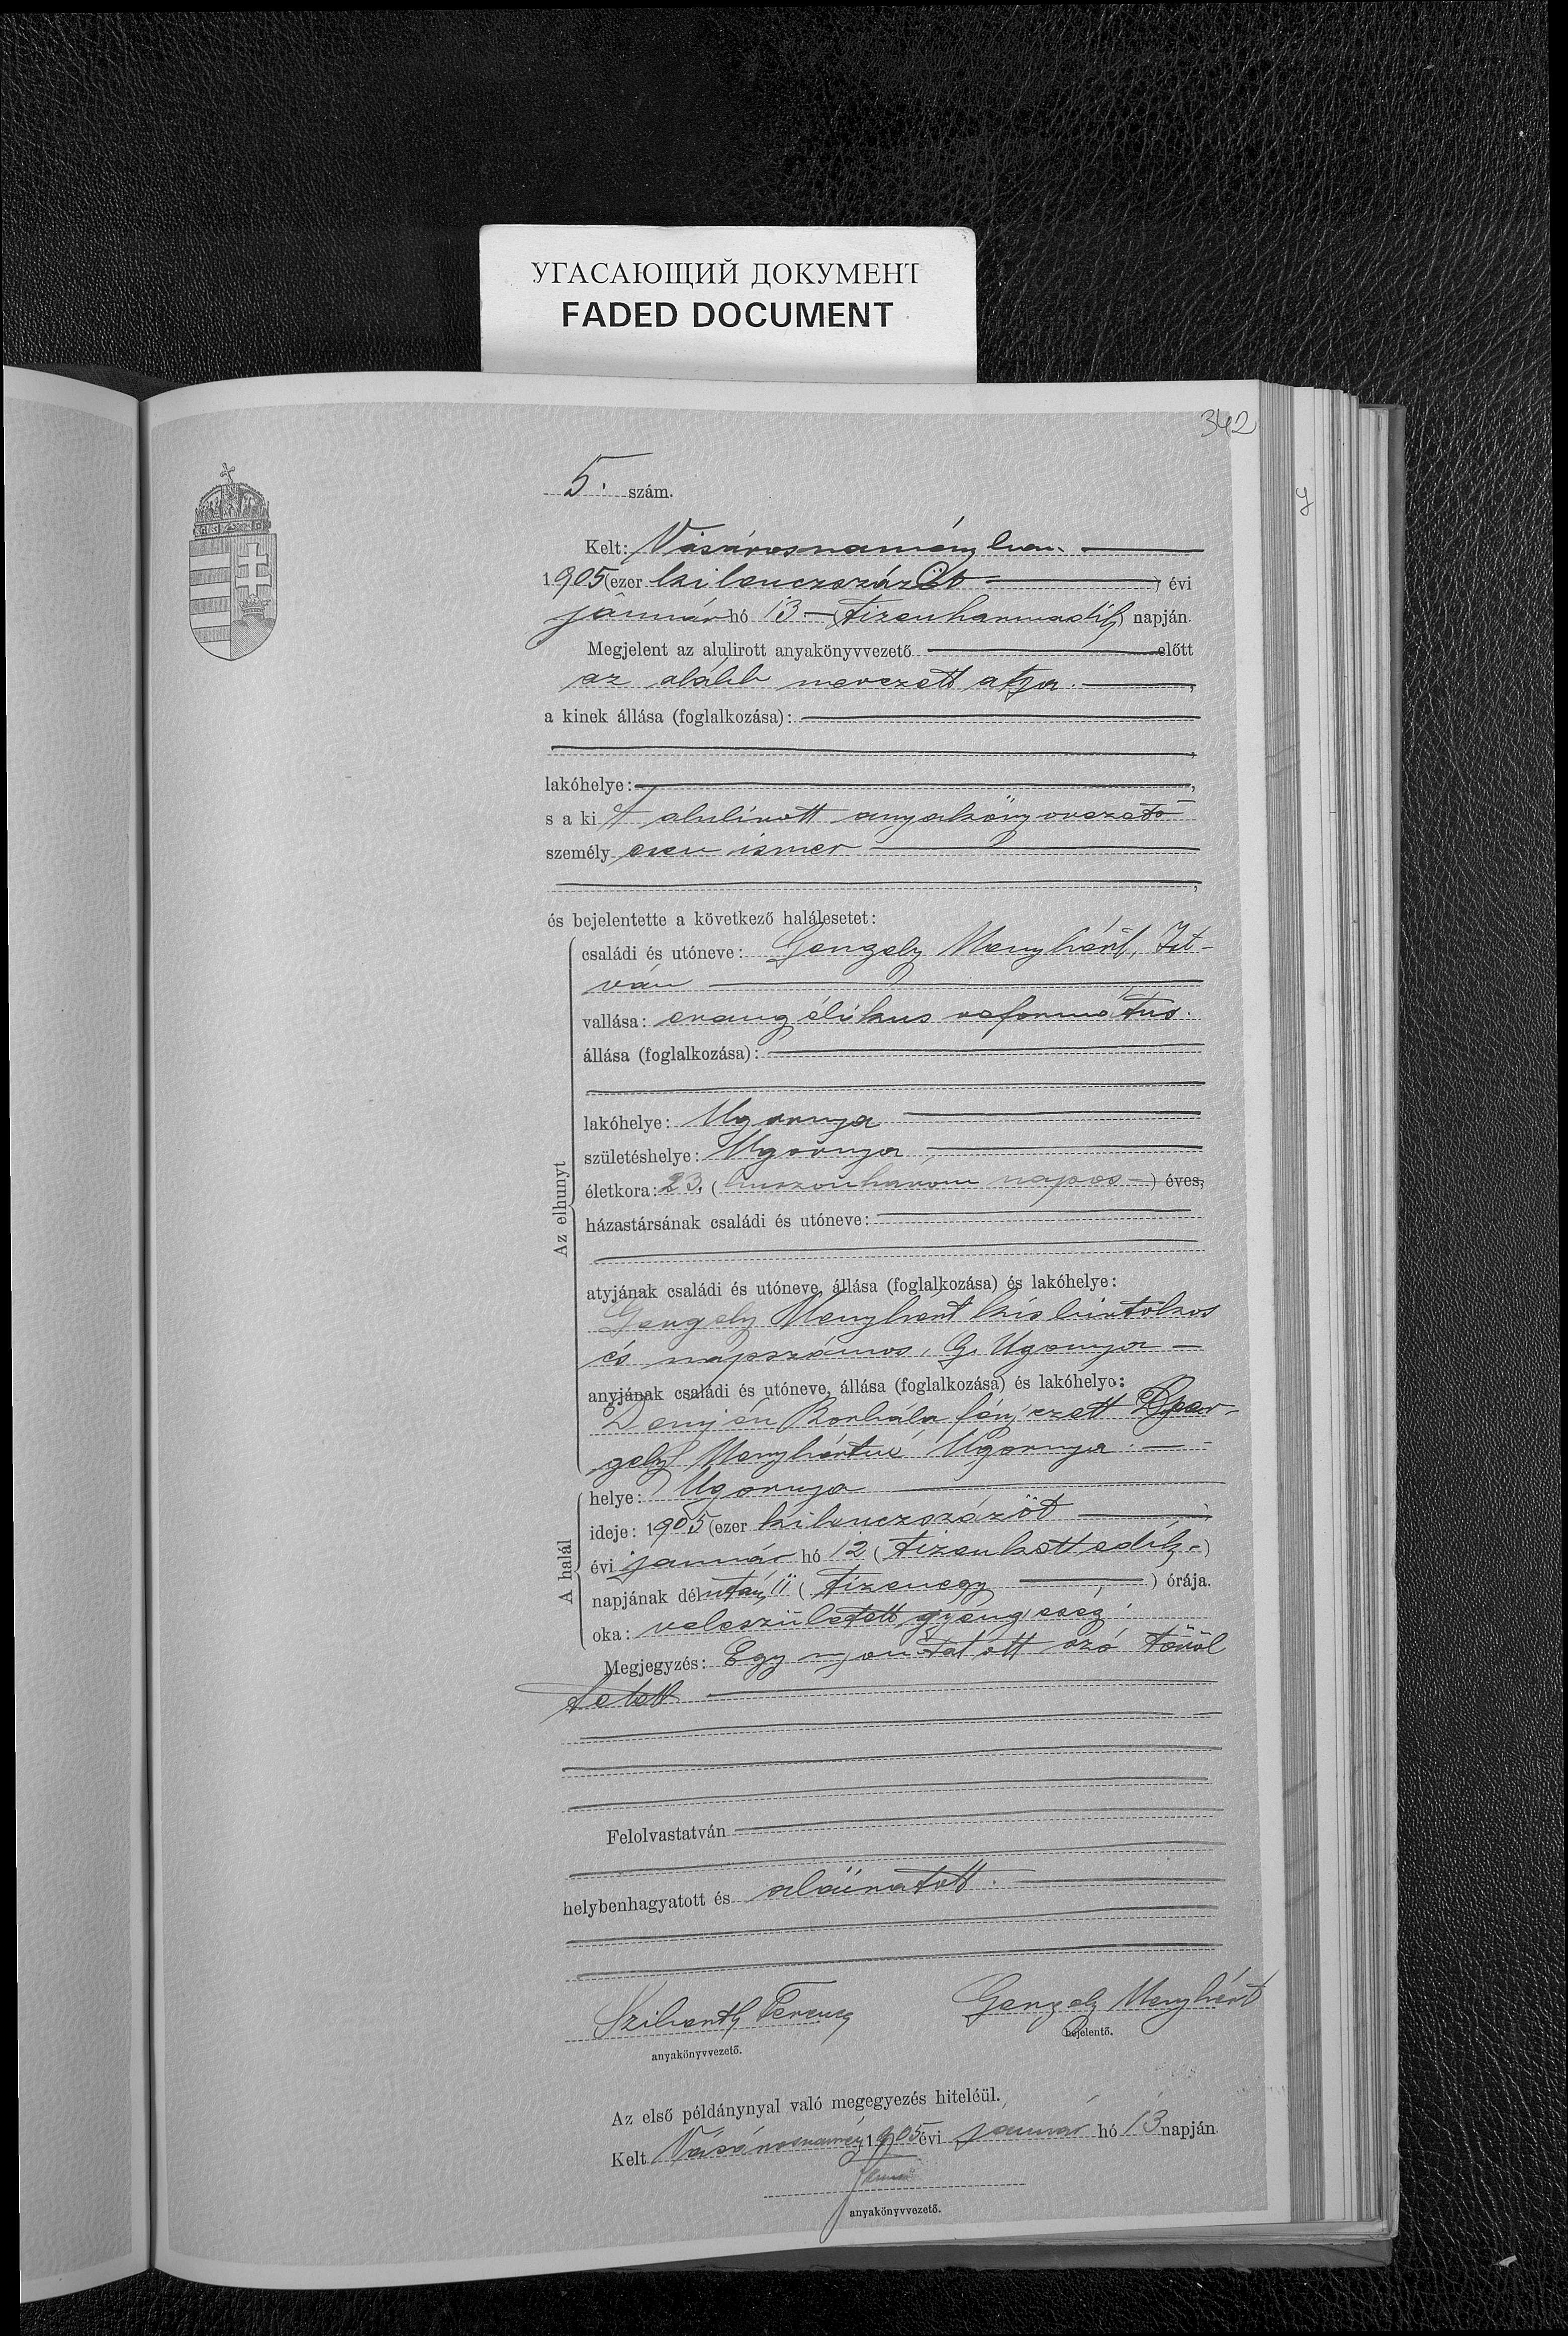 УГАСАЮЩИЙ ДОКУМЕНТ
FADED DOCUMENT
342
5. szám.
Kelt: Vásárosnaményban.
1905 (ezer kilenczszázöt ) évi
január hó 13 (tizenharmadik) napján.
Megjelent az alulirott anyakönyvvezető előtt
az alább nevezett atyja.
a kinek állása (foglalkozása):
lakóhelye:
s a kit alulirott anyakönyvvezető
személyesen ismer
és bejelentette a következő halálesetet:
Az elhunyt
családi és utóneve: Gergely Menyhért, Ist-
ván
vallása: evangélikus református.
állása (foglalkozása):
lakóhelye: Ugornya
születéshelye: Ugornya
életkora: 23. (huszonhárom napos ) éves,
házastársának családi és utóneve:
atyjának családi és utóneve, állása (foglalkozása) és lakóhelye:
Gergely Menyhért kisbirtokos
és napszámos, Ugornya
anyjának családi és utóneve, állása (foglalkozása) és lakóhelye:
Demjén Borbála férjezett Ger-
gely Menyhértné Ugornya.
A halál
helye: Ugornya
ideje: 1905 (ezer kilenczszázöt
évi január hó 12 (tizenkettedik)
napjának délután 11 (tizenegy ) órája.
oka: veleszületett gyengeség.
Megjegyzés: Egy nyomtatott szó töröl
tetett
Felolvastatván
helybenhagyatott és aláíratott.
Ferencz
Gergely Menyhért
anyakönyvvezető.
bejelentő.
Az első példánynyal való megegyezés hiteléül.
Kelt Vásárosnamény 1905 évi január hó 13 napján.
anyakönyvvezető.